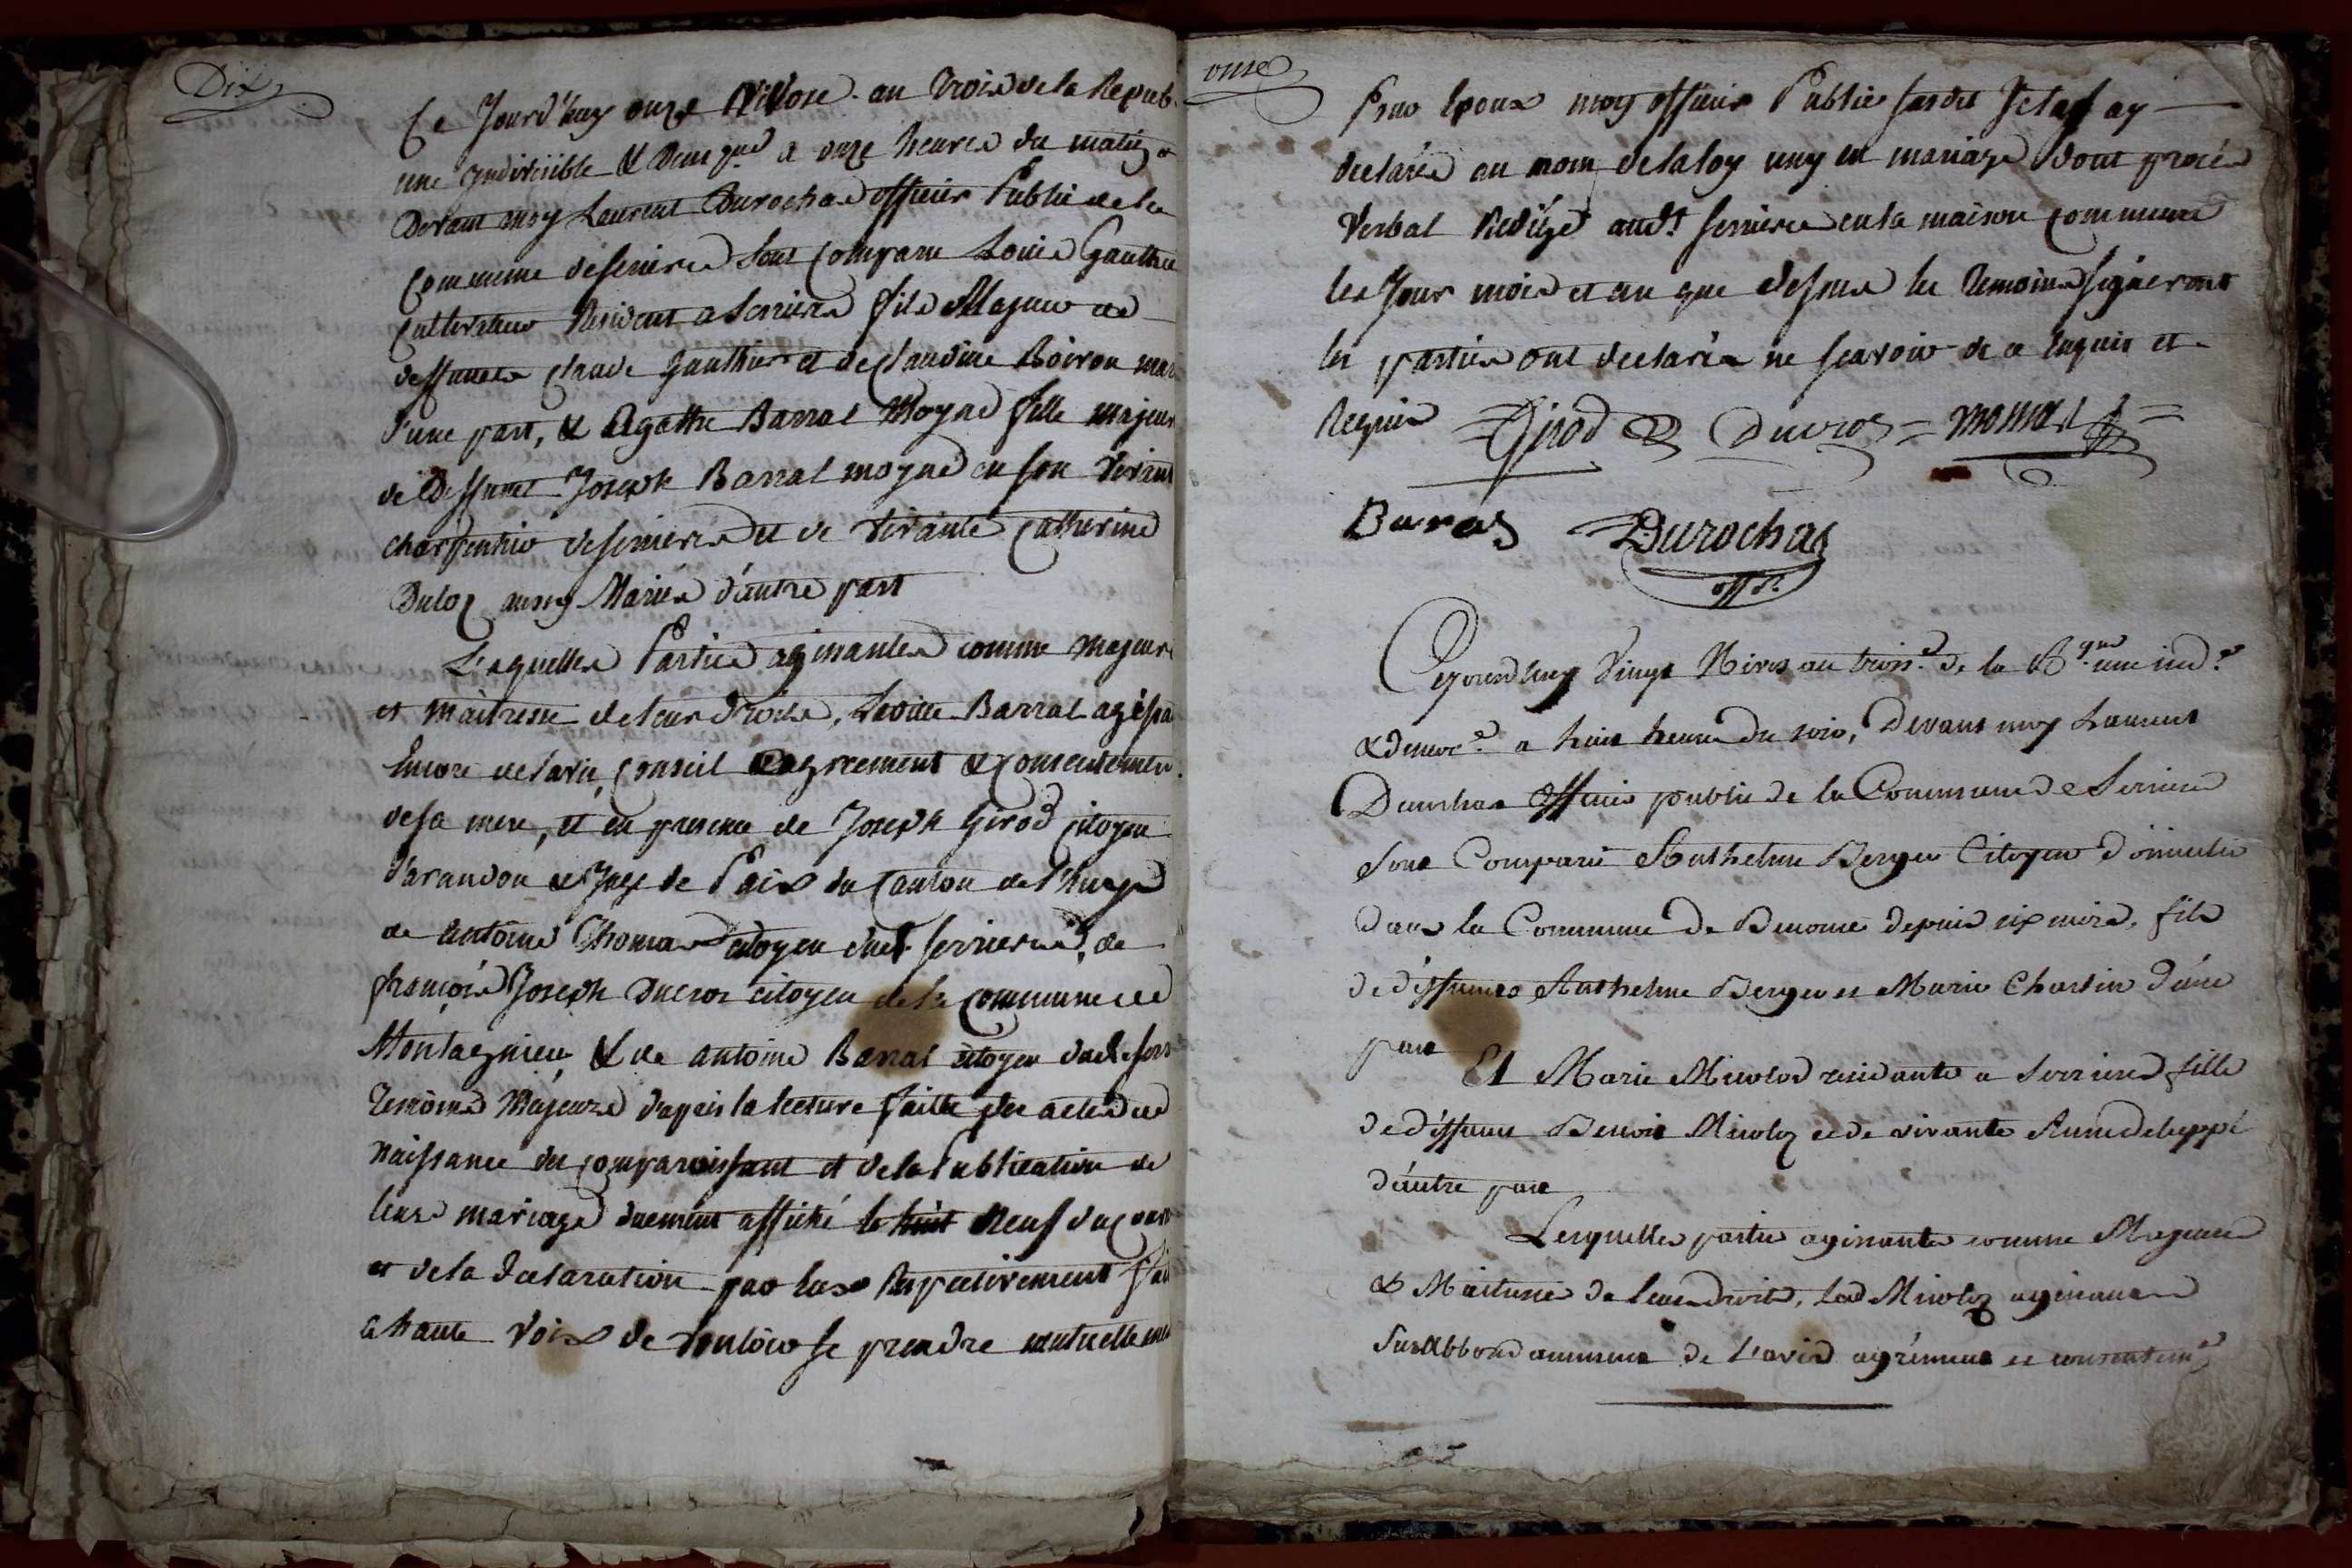 Dix
Ce Jourd'huy onze Nivose an trois de la Repub.
une yndivisible & Demq.ue a onze heures du matin
Devant moy Laurent Durochas officier Public de la
Commune de serieres sont comparu Louis Gauthier
cultivateur Resident a Serrieres fils Majeur de
deffuncts Claude Gauthier et de Claudine Boiron
d'une part, & Agathe Barral Moyne fille majeur
de Deffunct Joseph Barral moyne en son vivant
charpentier de serrieres et de vivante Catherine
Duloz aussy Mariés d'autre part
Lesquelles Parties agissantes comme majeurs
et maitresse de leur droits, laditte Barral
Encore de l'avis, Conseil agreement & consentement
de sa mere, et en presence de Joseph Girod citoyen
d'arandon et Juge de Paix du Canton de
de Antoine Thomas citoyen dud. serrieres, de
françois Joseph Ducros citoyen de la commune de
Montagnieu, & de antoine Barral citoyen dud. serr
Temoins Majeurs d'apres la lecture faitte des actes de
naissance des comparoissant et de la Publication de
leurs mariage duement affiché le huit neuf du
et de la declaration par luxs Respectivement fai
a haute voix de vouloir se prendre mutuellement
onse
Pour Epoux moy officier Public susdit Je las ay
declarés au nom de la loy uny en mariage dont procés
Verbal Redigé aud.t serrieres en la maison commune
les Jour mois et an que dessus les temoins signeront
les parties ont declarés ne scavoir de ce Enquis et
Requis Girod Ducros = Thomas =
Baras Durochas
off.r
Cejourdhuy Vingt Nivos an trois.e de la R.que une ind.e
& democ.e a huit heures du soir, Devant moy Laurent
Durochas Officier public de la Commune de Serrieres
Sont Comparu Anthelme Berger Citoyen domicilié
dans la Commune de Benonce depuis six mois, fils
de déffuncts Anthelme Berger et Marie Charlin d'une
part
Et Marie Micoloz residante a Serrieres fille
de déffunct Benoit Micoloz et de vivante Anne
d'autre part
Lesquelles parties agissantes comme Majeures
& Maitresse de leurs droits, lad Micoloz agissante
Surabbondamment de l'avis agrément et consentem.t